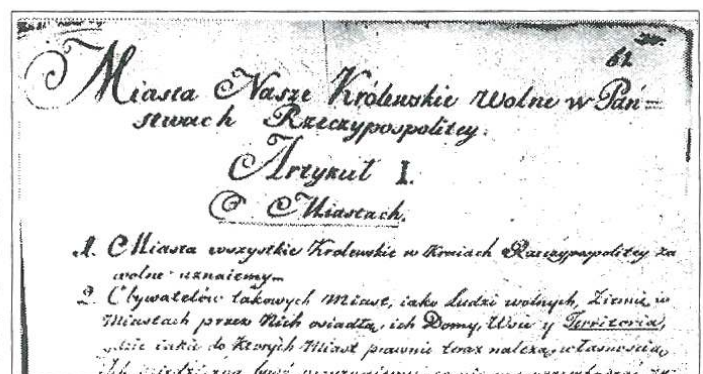 61
Miasta Nasze Królewskie wolne w Pań=
stwach Rzeczypospolitey.
Artykuł I.
O Miastach.
1. Miasta wszystkie Krolewskie w Kraiach Rzeczypospolitey za
wolne uznaiemy
2. Obywatelów takowych Miast, iako ludzi wolnych, Ziemię w
Miastach przez Nich osiadłą, ich Domy, Wsie y Territoria,
gdzie iakie do Ktorych Miast prawnie teraz należą, własnością
Ich dziedziczną być